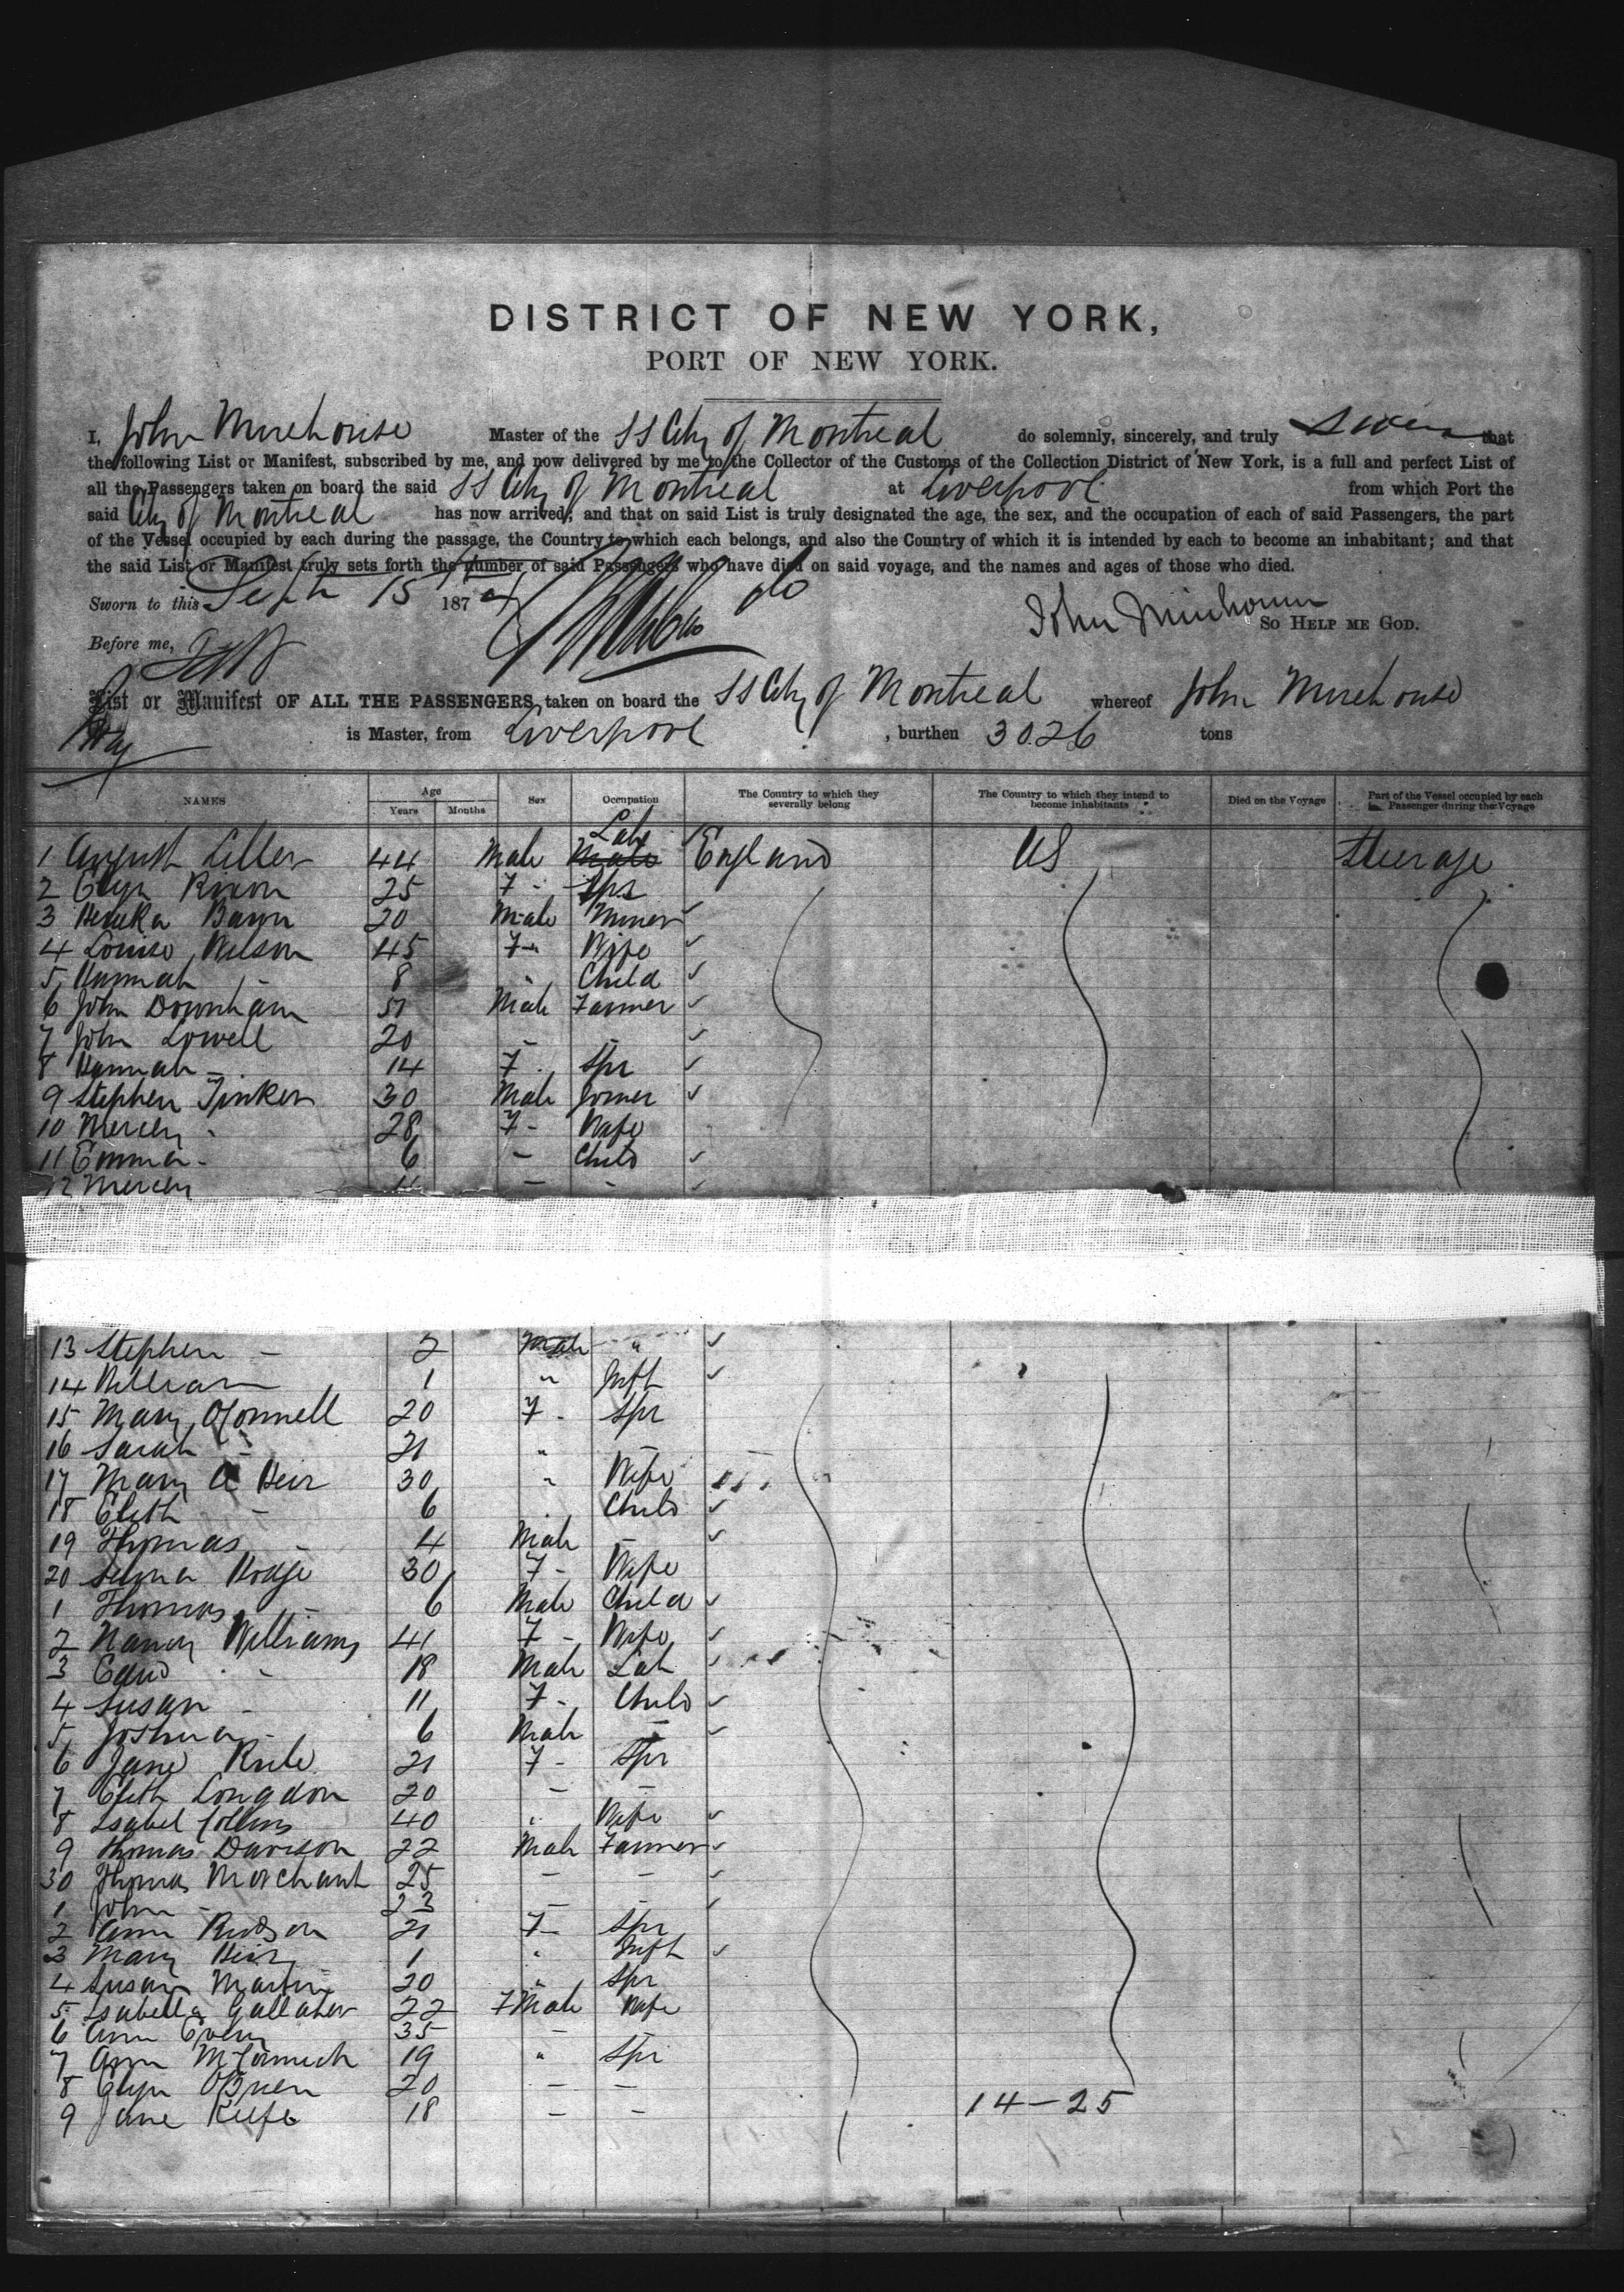 DISTRICT OF NEW YORK,
PORT OF NEW YORK.
I, John Mirehouse Master of the SS City of Montreal do solemnly, sincerely, and truly swear that
the following List or Manifest, subscribed by me, and now delivered by me to the Collector of the Customs of the Collection District of New York, is a full and perfect List of
all the Passengers taken on board the said SS City of Montreal at Liverpool from which Port the
said City of Montreal has now arrived; and that on said List is truly designated the age, the sex, and the occupation of each of said Passengers, the part
of the Vessel occupied by each during the passage, the Country to which each belongs, and also the Country of which it is intended by each to become an inhabitant; and that
the said List or Manifest truly sets forth the number of said Passengers who have died on said voyage, and the names and ages of those who died.
Sworn to this Sept 15th 1874 John Mirehouse
So HELP ME GOD.
Before me,
List or Manifest OF ALL THE PASSENGERS taken on board the SS City of Montreal whereof John Mirehouse
is Master, from Liverpool , burthen 3026 tons
NAMES Age Years Months Sex Occupation The Country to which they severally belong The Country to which they intend to become inhabitants Died on the Voyage Part of the Vessel occupied by each Passenger during the Voyage
1 August 44 Male Labr England US Steerage
2 Elizn Rixon 25 F - Spr
3 Baron 20 Male Miner
4 Louisa Wilson 45 F " Wife
5 Hannah - 8 " Child
6 John Downham 51 Male Farmer
7 John Lowell 20 - -
8 Hannah - 14 F. Spr
9 Stephen Tinker 30 Male Joiner
10 Mercey - 28 F - Wife
11 Emma - 6 - Child
12 Mercey - -
13 Stephen - 2 Male "
14 William 1 " Inft
15 Mary OConnell 20 F - Spr
16 Sarah - 21 " -
17 Mary A Heir 30 " Wife
18 Elizth - 6 . Child
19 Thomas - 4 Male -
20 Selina Hodge 30 F - Wife
1 Thomas - 6 Male Child
2 Nancy Williams 41 F - Wife
3 Edwd - 18 Male Lab
4 Susan - 11 F - Child
5 Joshua - 6 Male -
6 Jane Rule 21 F - Spr
7 Elizth Longdon 20 - -
8 Isabel Collins 40 " Wife
9 Thomas Davison 22 Male Farmer
30 Thomas Marchant 25 - -
1 John - 23 - -
2 Ann Hudson 21 F - Spr
3 Mary Heir 1 " Inft
4 Susan Martin 20 " Spr
5 Isabella Gallaher 22 FMale Wife
6 Ann Every 35 - -
7 Ann McCormick 19 " Spr
8 Elizn OBrien 20 - -
9 Jane Keefe 18 - -
14-25